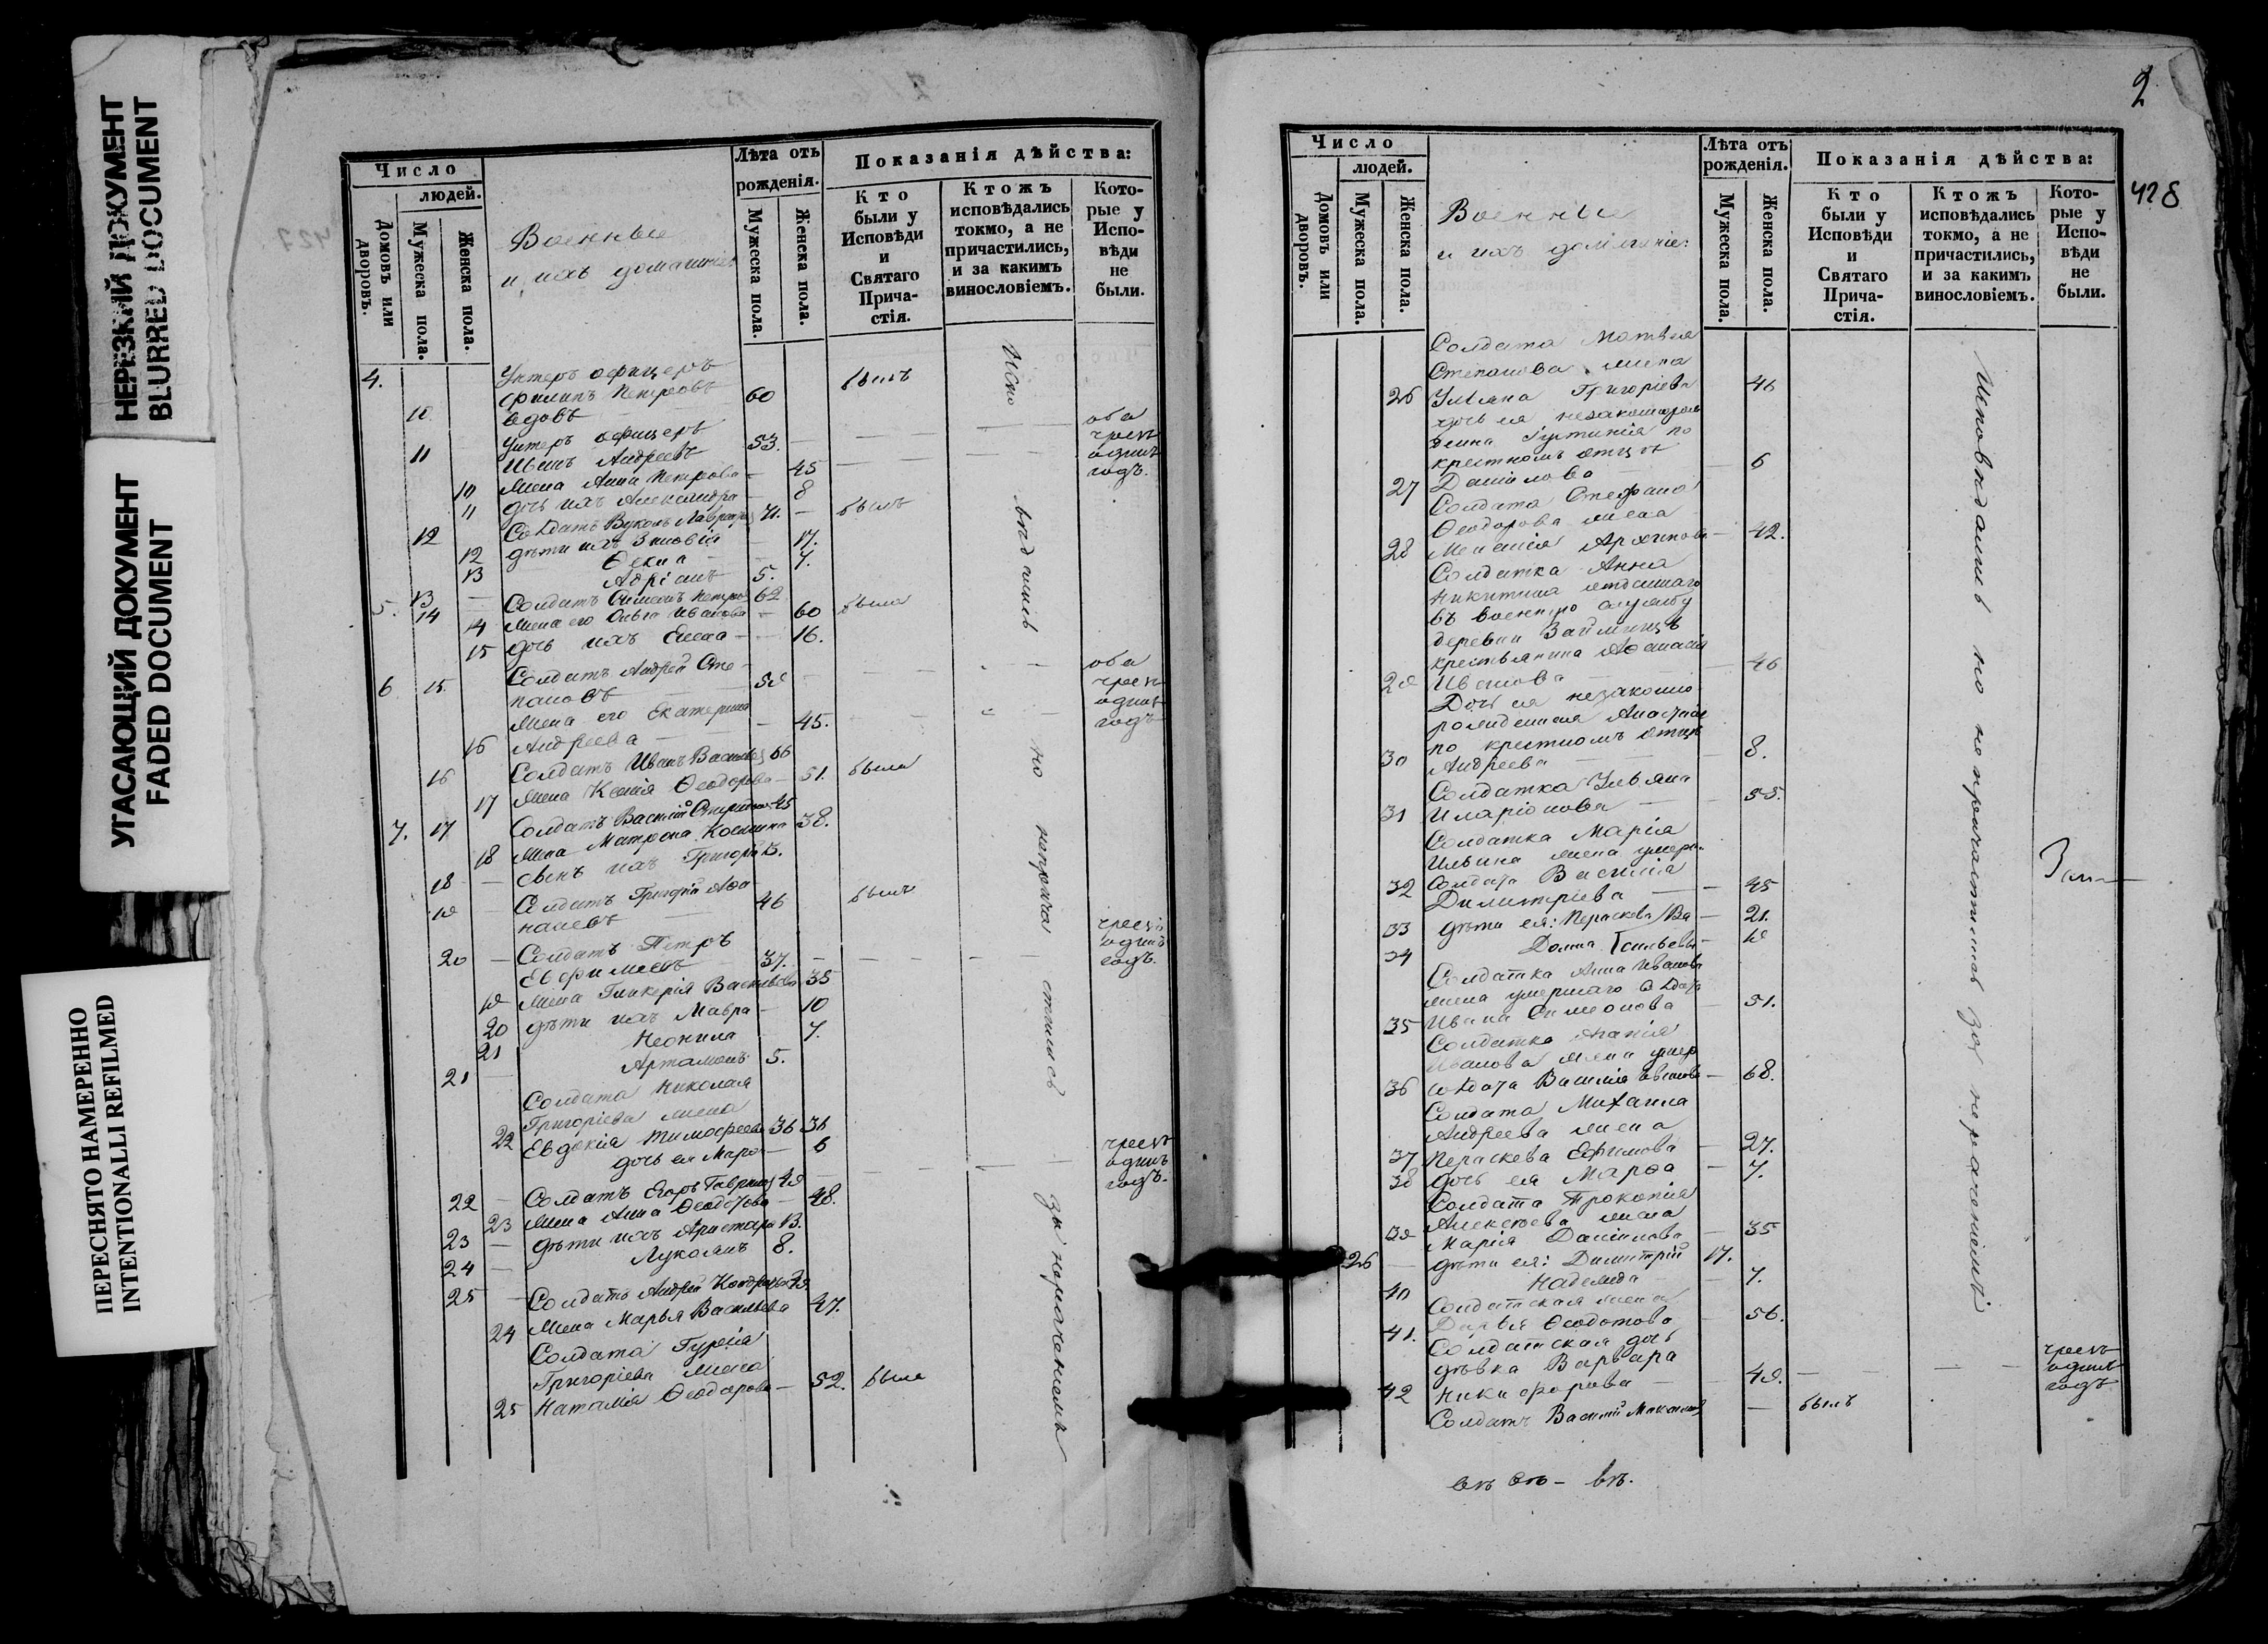 НЕРЕЗКИЙ ДОКУМЕНТ
BLURRED DOCUMENT
УГАСАЮЩИЙ ДОКУМЕНТ
FADED DOCUMENT
ПЕРЕСНЯТО НАМЕРЕННО
INTENTIONALLI REFILMED
427
Число
людей.
Домовъ или дворовъ.
Мужеска пола.
Женска пола.
Военные
и ихъ домашніе
Лѣта отъ рожденія.
Мужеска пола.
Женска пола.
Показанія дѣйства:
Кто были у Исповѣди и Святаго Прича-стія.
Ктожъ исповѣдались токмо, а не причастились, и за какимъ винословіемъ.
Кото-рые у Испо-вѣди не были.
4. Унтеръ офицеръ
10 Филипъ Петровъ 60 былъ
вдовъ
Унтеръ офицеръ
11 Иванъ Андреевъ 53. — оба чрезъ одинъ годъ.
10 Жена Анна Петрова — 45
11 дочь ихъ Александра — 8
12 Солдатъ Вуколъ 71. — былъ
12 дѣти ихъ Зиновія — 17.
13 Ѳекла — 7.
13 Адріанъ 5.
5. 14 Солдатъ Симеонъ Петровъ 62
14 Жена его Ольга Иванова — 60 были
15 дочь ихъ Елена — 16.
6 15 Солдатъ Андрей Сте-
пановъ 58 оба чрезъ одинъ годъ
Жена его Екатерина
16 Андреева — 45.
16 Солдатъ Иванъ 66
17 Жена Ксенія Ѳеодорова — 51. были
7. 17 Солдатъ Василій 45
18 Жена Матрона 38.
18 — сынъ ихъ Григорій 13.
19 — Солдатъ Григорій Аѳа-
насьевъ 46 былъ
20 — Солдатъ Петръ
Евфимовъ 37. чрезъ одинъ годъ.
19 Жена Гликерія Васильева 35
20 дѣти ихъ Мавра — 10
21 Неонила 7.
21 Артамонъ 5.
Солдата Николая
Григорьева жена
22 Евдокія Тимофеева 36 36
дочь ея Марѳа — 6 чрезъ одинъ годъ.
22 — Солдатъ Егоръ 49
23 Жена Анна Ѳеодорова — 48.
23 — дѣти ихъ Аристархъ 13.
24 — Лукіанъ 8.
25 — Солдатъ Андрей
24 Жена Марья Васильева 47.
Солдата Гурія
Григорьева жена
25 Наталія Ѳеодорова — 52. была
Исповѣдались но непричастились за нерачениемъ
2
428
Число
людей.
Домовъ или дворовъ.
Мужеска пола.
Женска пола.
Военные
и ихъ домашніе:
Лѣта отъ рожденія.
Мужеска пола.
Женска пола.
Показанія дѣйства:
Кто были у Исповѣди и Святаго Прича-стія.
Ктожъ исповѣдались токмо, а не причастились, и за какимъ винословіемъ.
Кото-рые у Испо-вѣди не были.
Солдата Матвея
Степанова жена
26 Ульяна Григорьева 46
дочь ея незаконорож
денна Іустинія по
крестномъ отцѣ
27 Данилова — 6
Солдата Стефана
Ѳеодорова жена
28 Меланія Архипова — 42.
Солдатка Анна
Никитина отданнаго
въ военную службу
деревни Займищъ
крестьянина Аѳанасія
29 Иванова — 46
Дочь ея незаконно
рожденная Анастасія
по крестномъ отцѣ
30 Андреева — 8.
Солдатка Ульяна
31 Иларіонова — 55.
Солдатка Марія
Ильина жена умерш
32 Солдата Василія
Димитріева — 45
33 дѣти ея: Параскева Ва — 21.
34 Домна сильевы — 19
Солдатка Анна Иванова
жена умершаго солдата
35 Ивана Симеонова — 51.
Солдатка
Иванова жена умер
36 солдата Василія Иванова — 68.
Солдата Михаила
Андреева жена
37 Параскева Ефимова — 27.
38 дочь ея Марѳа — 7.
Солдата Прокопія
Алексеева жена
39 Марія Данилова — 35
26 — дѣти ея: Димитрій 17.
40 Надежда — 7.
Солдатская жена
41. Дарья Ѳеодотова — 56.
Солдатская дочь
дѣвка Варвара
42 Никифорова — 49. чрезъ одинъ годъ
Солдатъ Василій — былъ
Исповѣдались но непричастились за нерачениемъ